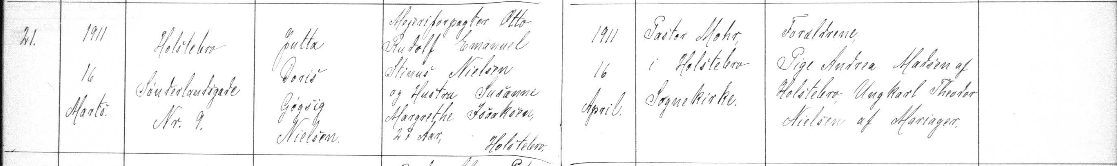 21.
1911
16
Marts.
Holstebro
Sønderlandsgade
Nr. 9.
Jutta
Doris
Gøgsig
Nielsen.
Mejeriforpagter Otto
Rudolf Emanuel
Stinus Nielsen
og Hustru Susanne
Margrethe Isaksen,
27 Aar,
Holstebro
1911
16
April.
Pastor Mohr,
i Holstebro
Sognekirke.
Forældrene,
Pige Andrea Madsen af
Holstebro, Ungkarl Theodor
Nielsen af Mariager.